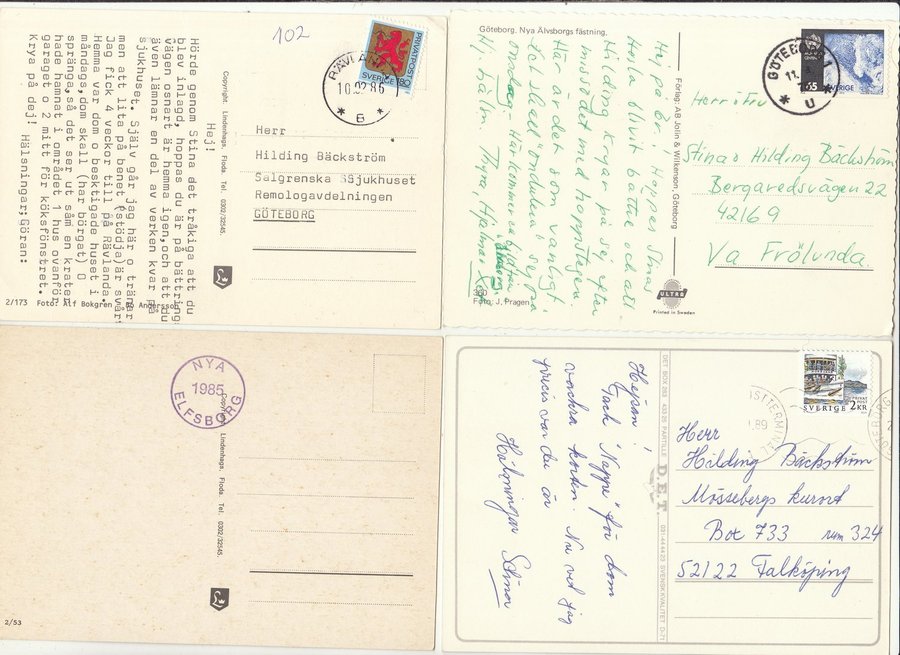 102
PRIVATPOST
SVERIGE 180
10.02.86
6
Herr
Hilding Bäckström
Salgrenska Sjukhuset
Remologavdelningen
GÖTEBORG
Copyright Lindenhags, Floda. Tel. 0302/32545.
Hej!
Hörde genom Stina det tråkiga att du
blev inlagd, hoppas du är på bättring
vägen o snart är hemma igen, och att du
även lämnar en del av verken kvar på
sjukhuset. Själv går jag här o tränar
men att lita på benet (stödja) är svårt
Jag fick 4 veckor till på Rävlanda.
Hemma var dom o besktigade huset i
måndags, dom skall (har börjat) O
spränga, så det ser ut såm en krater
hade hamnat i området 1 hos ovanför
garaget o 2 mitt för köksfönstret.
Krya på dej! Hälsningar; Göran:
2/173 Foto: Alf Bokgren Bo Andersson
Göteborg. Nya Älvsborgs fästning.
Hej på Er! Hoppas Stinas
hosta blivit bättre och att
Hilding kryar på sig efter
missödet med hoppstegen.
Här är det som vanligt.
Hj. hälsn. Thyra, Hjalmar
Foto: J. Pragen
Förlag: AB Jolin & Wilkenson, Göteborg
ULTRA
Printed in Sweden
GÖTEBORG 1
U
65
SVERIGE
Herr o Fru
Stina o Hilding Bäckström
Bergaredsvägen 22
42169
Va Frölunda.
NYA
1985
ELFSBORG
Copyright Lindenhags, Floda. Tel. 0302/32545.
2/53
Hejsan!
Tack "Nappe" för dom
vackra korten. Nu vet jag
precis var du är
Hälsningar Stina
DET BOX 263 433 25 PARTILLE D.E.T. 031-44 44 23 SVENSK KVALITET D-71
PRIVAT
POST
SVERIGE 2 KR
.89
GÖTEBORG
Herr
Hilding Bäckström
Mössebergs kurort
Box 733 rum 324
52122 Falköping